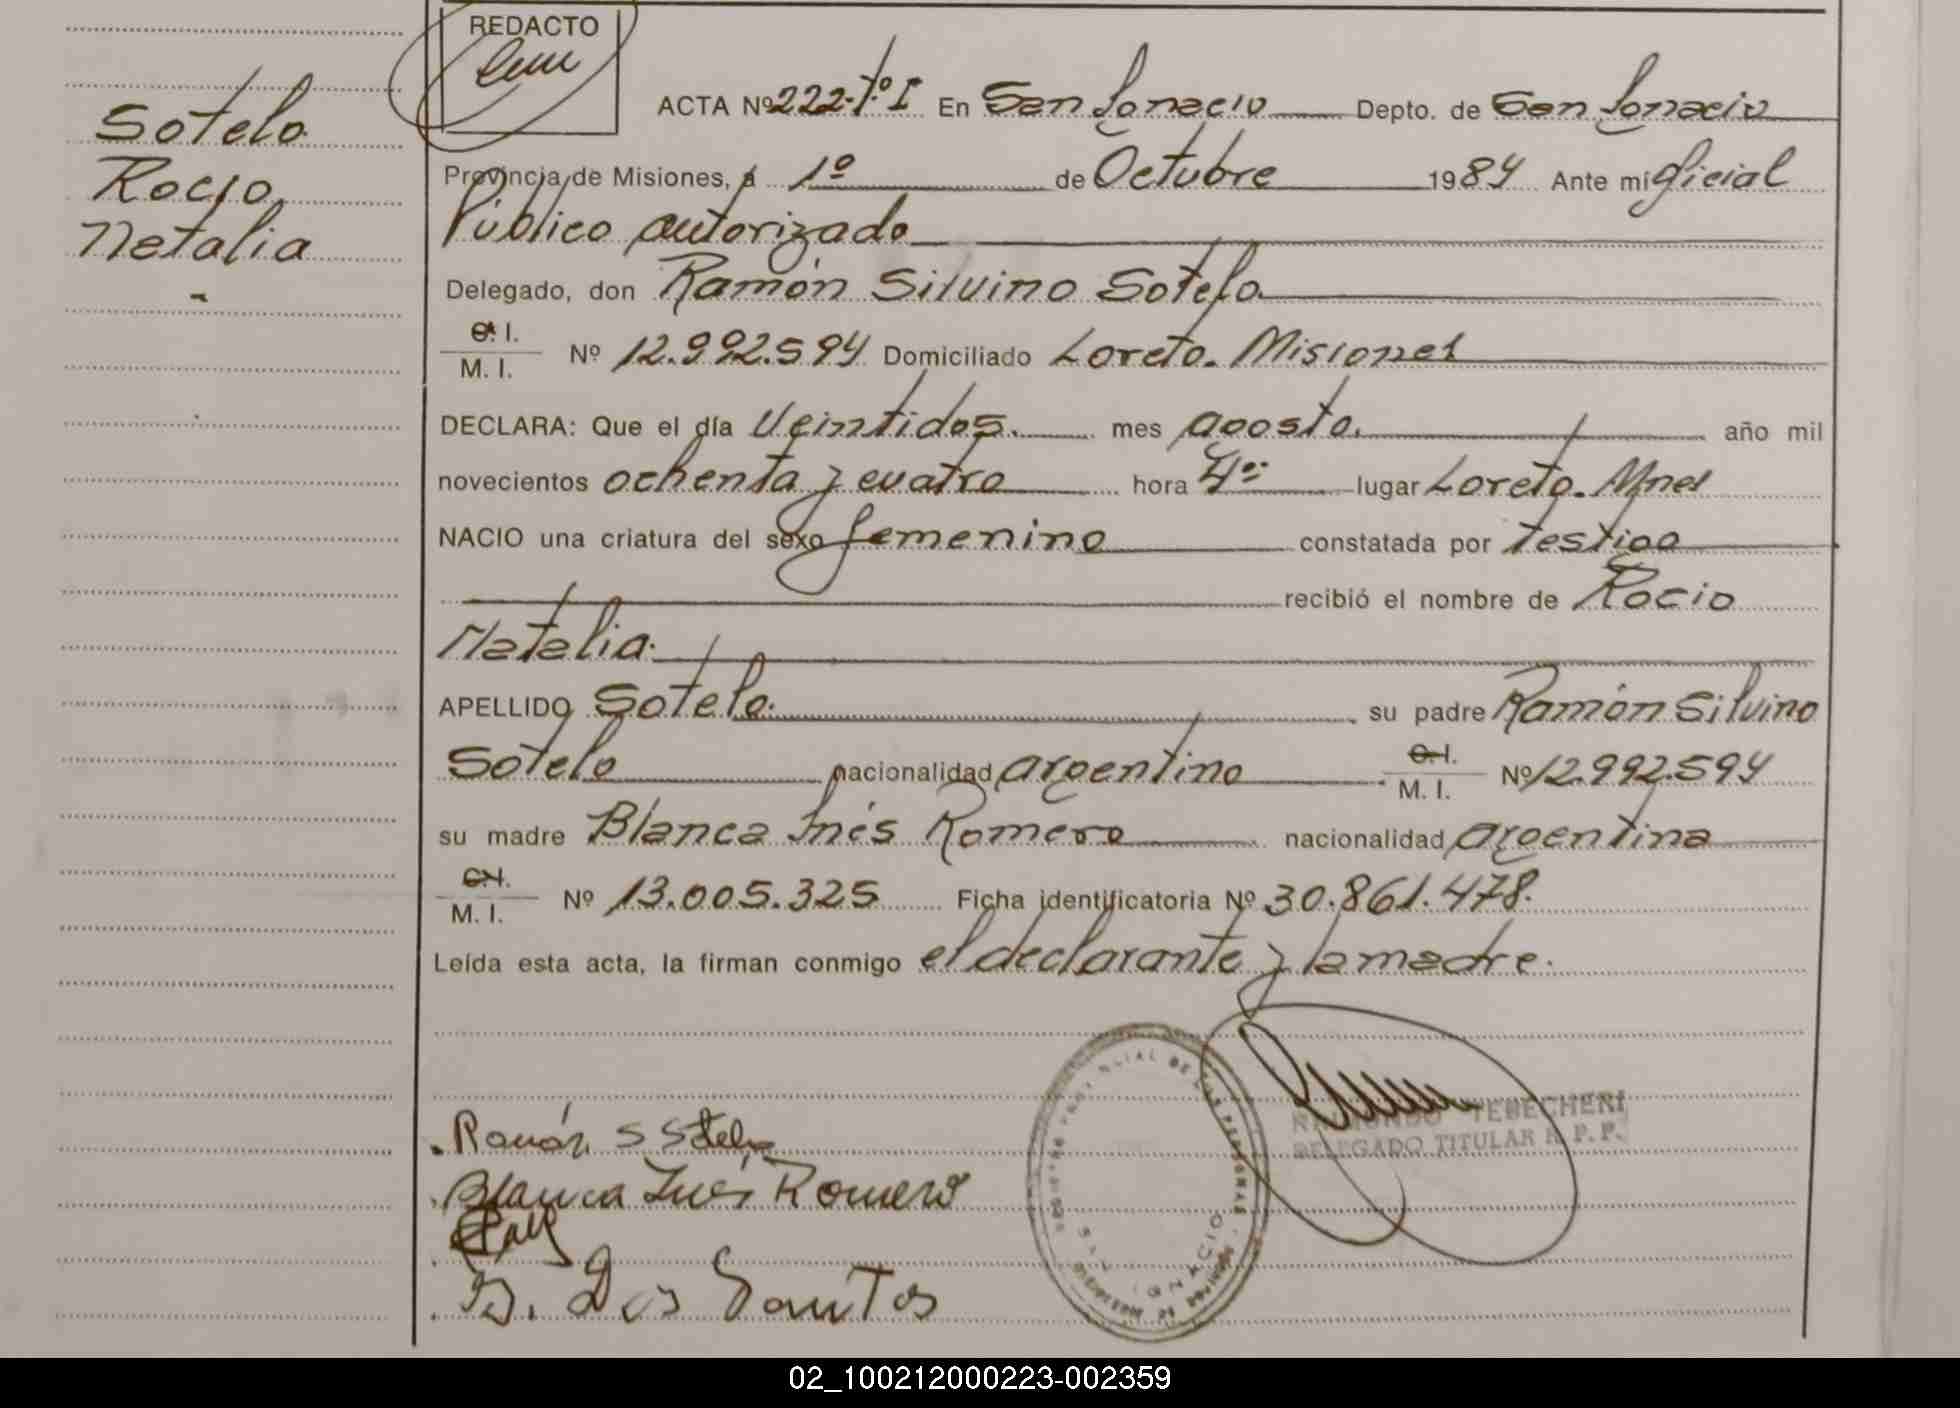 REDACTO
Sotelo
Rocío
Natalia
ACTA Nº 222-Tº I En San Ignacio Depto. de San Ignacio
Provincia de Misiones, a 1º de Octubre 1984 Ante mí Oficial
Público autorizado
Delegado, don Ramón Silvino Sotelo
C. I.
M. I. Nº 12.992.594 Domiciliado Loreto. Misiones
DECLARA: Que el día Veintidos. mes agosto. año mil
novecientos ochenta y cuatro hora 4 lugar Loreto. Mnes
NACIO una criatura del sexo femenino constatada por testigo
recibió el nombre de Rocío
Natalia.
APELLIDO Sotelo. su padre Ramón Silvino
Sotelo nacionalidad argentino C. I. M. I. Nº 12.992.594
su madre Blanca Inés Romero nacionalidad argentina
C. I.
M. I. Nº 13.005.325 Ficha identificatoria Nº 30.861.478.
Leída esta acta, la firman conmigo el declarante y la madre.
Ramón S Sotelo
Blanca Inés Romero
B. Dos Santos
REGISTRO PROVINCIAL DE LAS PERSONAS
SAN IGNACIO
RAIMUNDO TEBECHERI
DELEGADO TITULAR R. P. P.
02_100212000223-002359